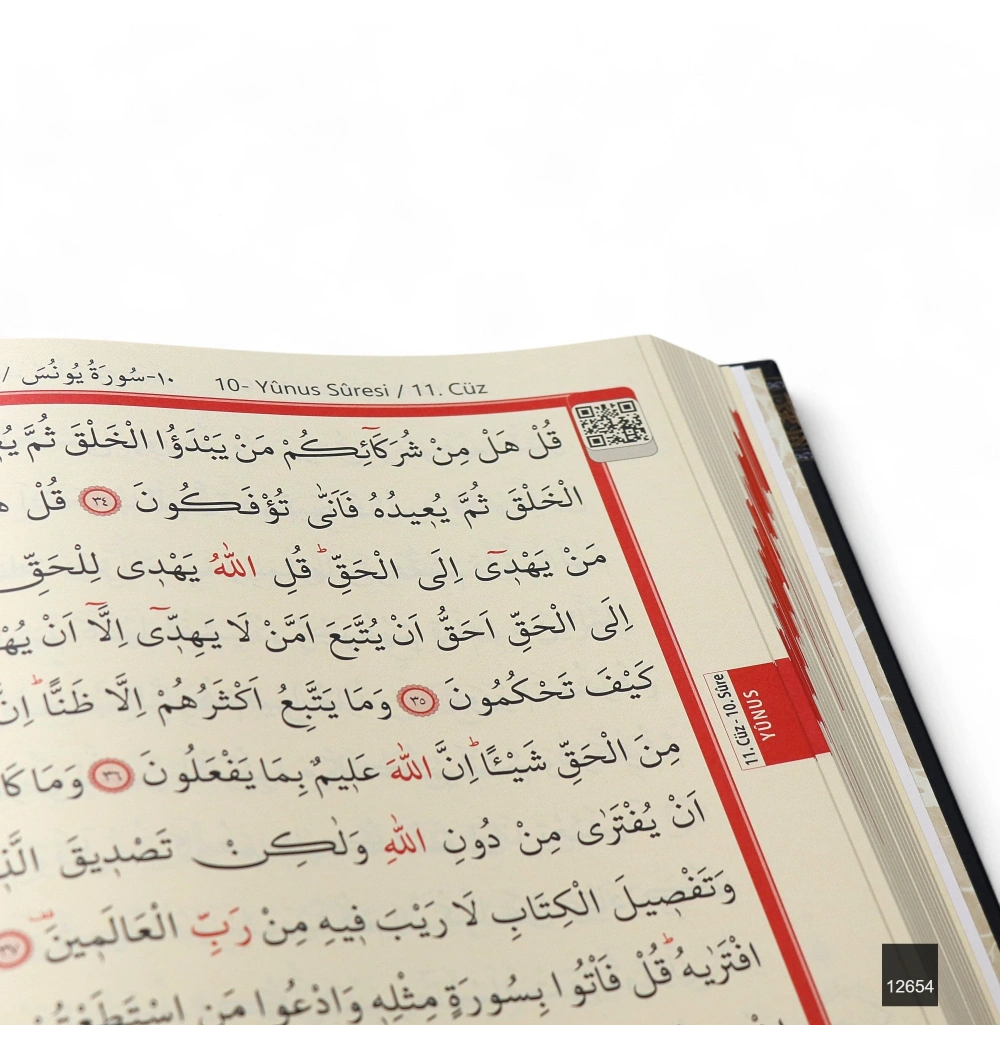 ١٠-سُورَةُ يُونُسَ / 10- Yûnus Sûresi / 11. Cüz
قُلْ هَلْ مِنْ شُرَكَٓائِكُمْ مَنْ يَبْدَؤُا الْخَلْقَ ثُمَّ
الْخَلْقَ ثُمَّ يُع۪يدُهُ فَاَنّٰى تُؤْفَكُونَ ٣٤ قُلْ
مَنْ يَهْد۪ٓى اِلَى الْحَقِّۜ قُلِ اللّٰهُ يَهْد۪ى لِلْحَقِّ
اِلَى الْحَقِّ اَحَقُّ اَنْ يُتَّبَعَ اَمَّنْ لَا يَهِدّ۪ٓى اِلَّٓا اَنْ
كَيْفَ تَحْكُمُونَ ٣٥ وَمَا يَتَّبِعُ اَكْثَرُهُمْ اِلَّا ظَنًّاۜ
مِنَ الْحَقِّ شَيْـًٔاۜ اِنَّ اللّٰهَ عَل۪يمٌ بِمَا يَفْعَلُونَ ٣٦ وَمَا
اَنْ يُفْتَرٰى مِنْ دُونِ اللّٰهِ وَلٰكِنْ تَصْد۪يقَ
وَتَفْص۪يلَ الْكِتَابِ لَا رَيْبَ ف۪يهِ مِنْ رَبِّ الْعَالَم۪ينَ۠ ٣٧
افْتَرٰيهُۜ قُلْ فَأْتُوا بِسُورَةٍ مِثْلِه۪ وَادْعُوا مَنِ اسْتَطَعْتُمْ
11. Cüz - 10. Sûre
YÛNUS
12654